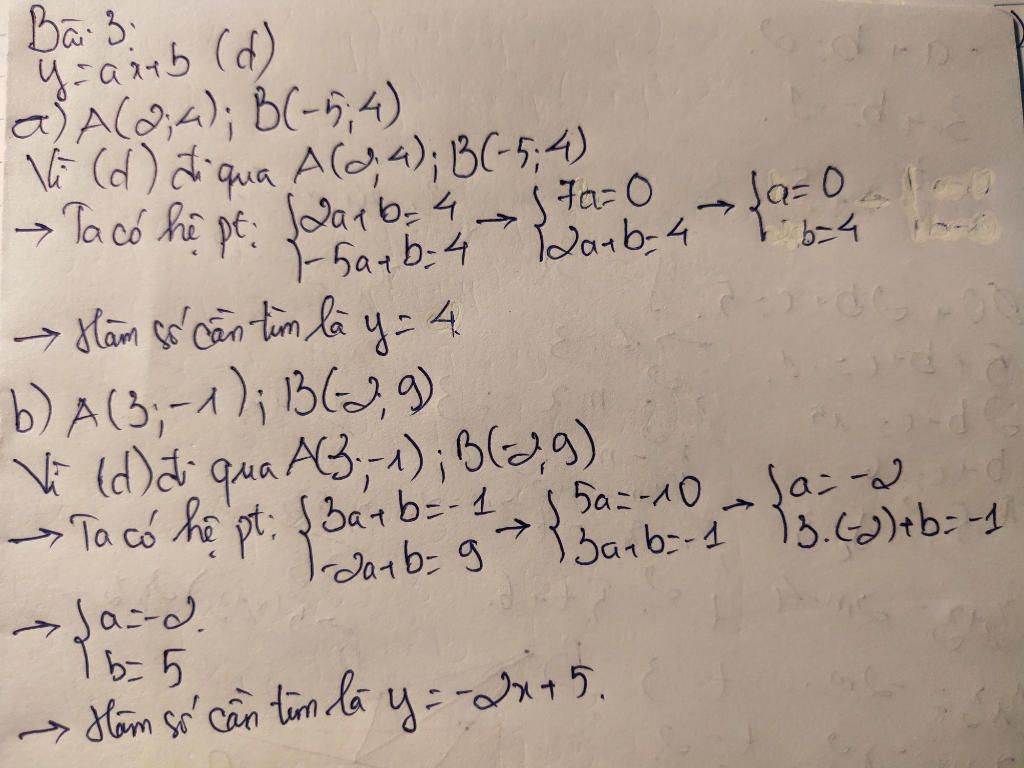 Bài 3:
y=ax+b (d)
a) A(2;4); B(-5;4)
Vì (d) đi qua A(2;4); B(-5;4)
→ Ta có hệ pt: {2a+b=4 → {7a=0 → {a=0
-5a+b=4 2a+b=4 b=4
→ Hàm số cần tìm là y=4
b) A(3;-1); B(-2;9)
Vì (d) đi qua A(3;-1); B(-2;9)
→ Ta có hệ pt: {3a+b=-1 → {5a=-10 → {a=-2
-2a+b=9 3a+b=-1 3.(-2)+b=-1
→ {a=-2.
b=5
→ Hàm số cần tìm là y=-2x+5.